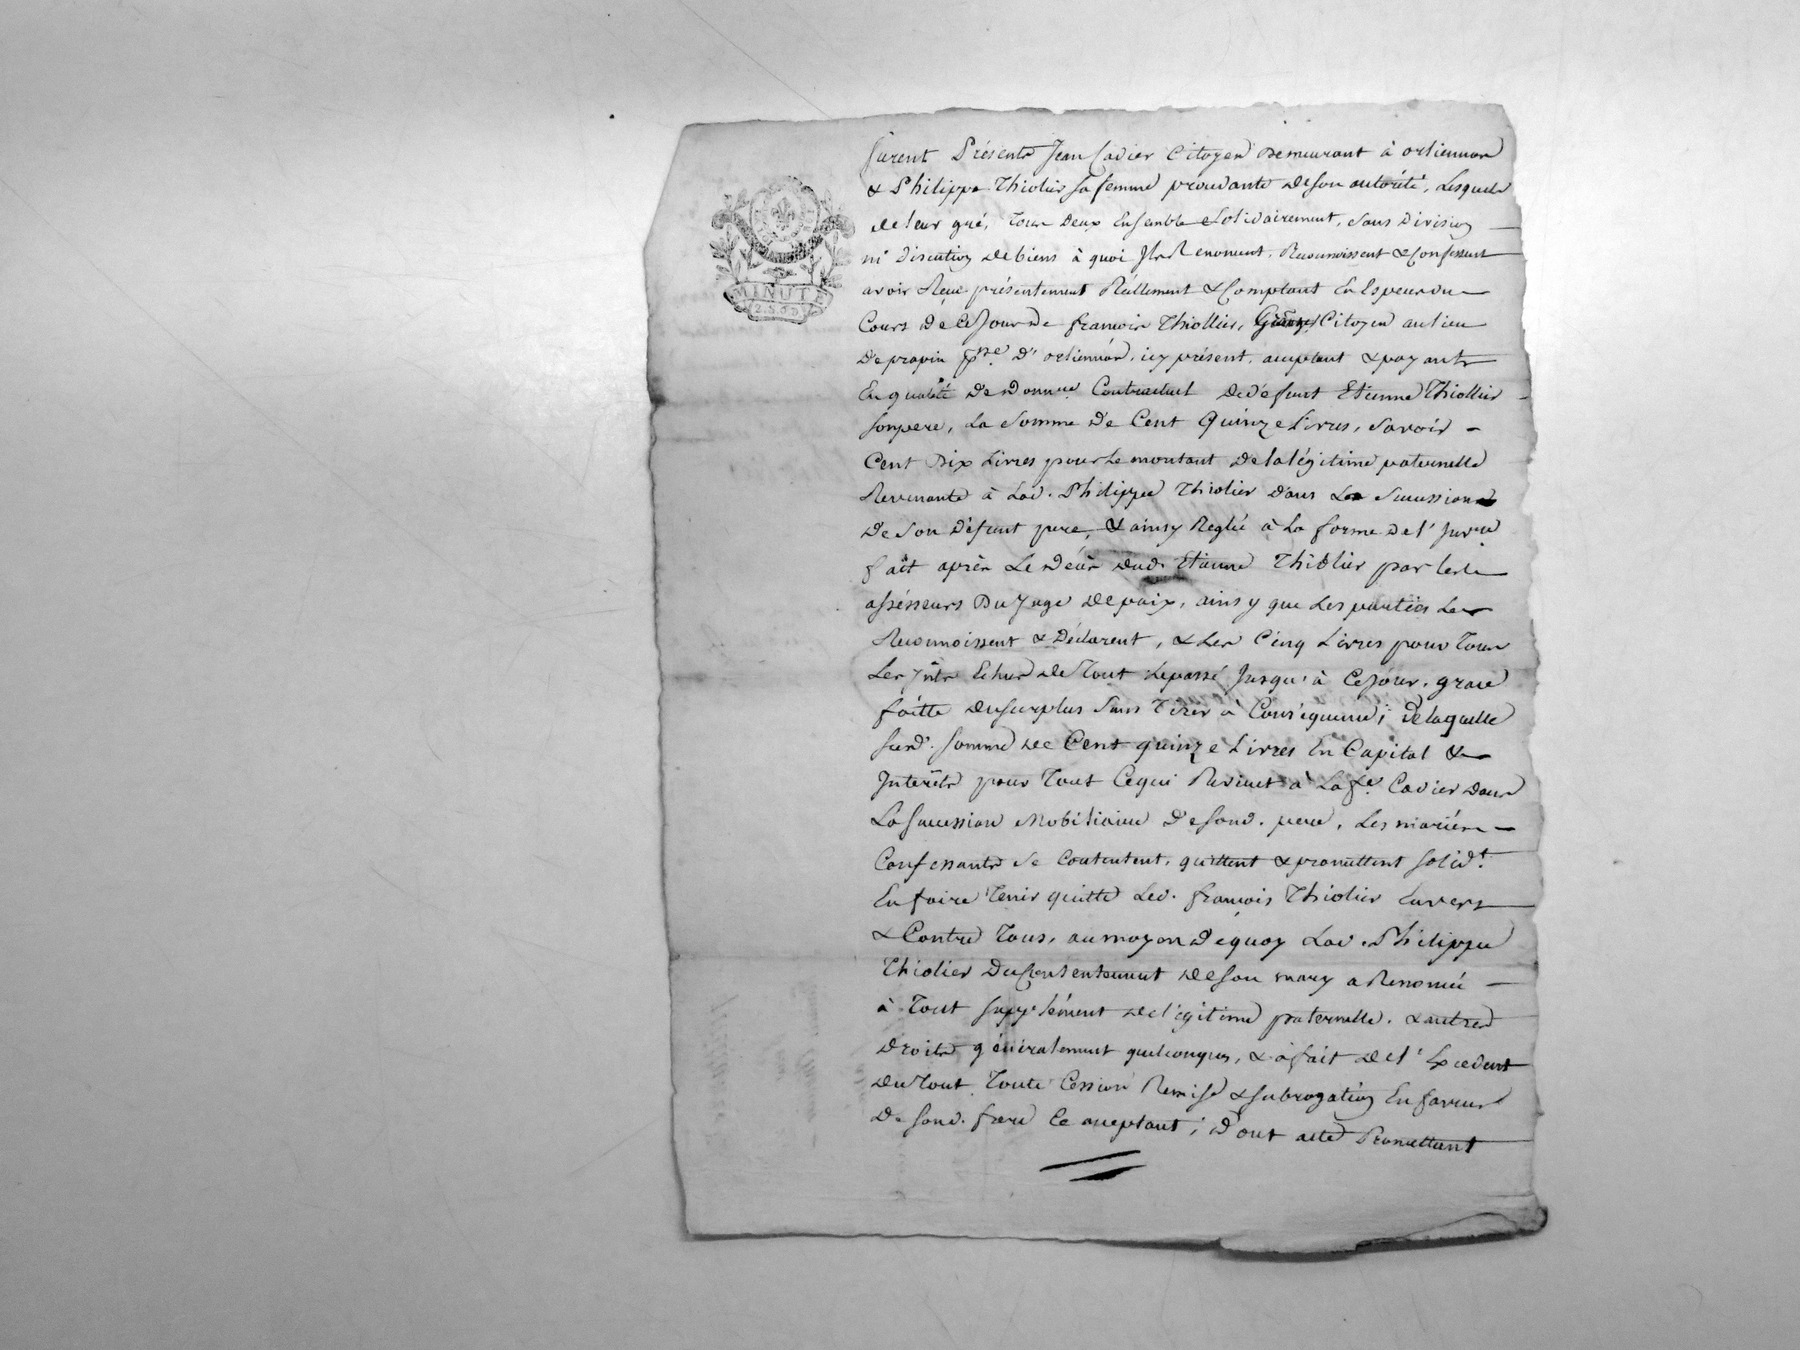 MINUTE
2. S. 6 D.
furent Présents Jean Cadier Citoyen Demeurant à orliennar
& Philippa Thiolier sa femme procédante de son autorité, Lesquels
de leur gré, Tous Deux Ensemble & solidairement, sans Division
ni discution de biens à quoi Ils Renoncent, Reconnoissent & Confessent
avoir Reçu présentement Réellement & Comptant En Espece du
Cours de Ce Jour De françois Thiollier, Citoyen au lieu
De prapin psse D'orliennar, icy présent, acceptant & payant
En qualité De Donnre Contractuel de défunt Etienne Thiollier
son pere, La Somme De Cent Quinze Livres, Savoir
Cent Dix Livres pour le montant de la légitime paternelle
Revenante à Lad. Philippe Thiolier dans La Succession
De Son Défunt pere, & ainsy Reglée à La forme De l'Invre
fait après Le Décès dud. Etienne Thiolier par les
assésseurs Du Juge de paix, ainsy que Les parties Le
Reconnoissent & Déclarent, & Les Cinq Livres pour Tous
Les Ints Echus de Tout Le passé Jusqu'à Ce Jour, grace
faitte du surplus Sans Tirer à Conséquence; de laquelle
susd. somme de Cent quinze Livres En Capital &
Interêts pour Tout Ce qui Revient à La fe. Cadier dans
La succession Mobiliaire De sond. pere, Les mariés
Confessants Se Contentent, quittent & promettent solidt.
En faire Tenir quitte Led. françois Thiolier Envers
& Contre Tous, au moyen De quoy Lad. Philippe
Thiolier Du Consentement de son mary a Renoncé
à Tout supplément de légitime paternelle, & autres
Droits généralement quelconques, & a fait de l'Excedent
du Tout Toute Cession Remise & subrogation En faveur
De sond. frere Ce acceptant; Dont acte Promettant